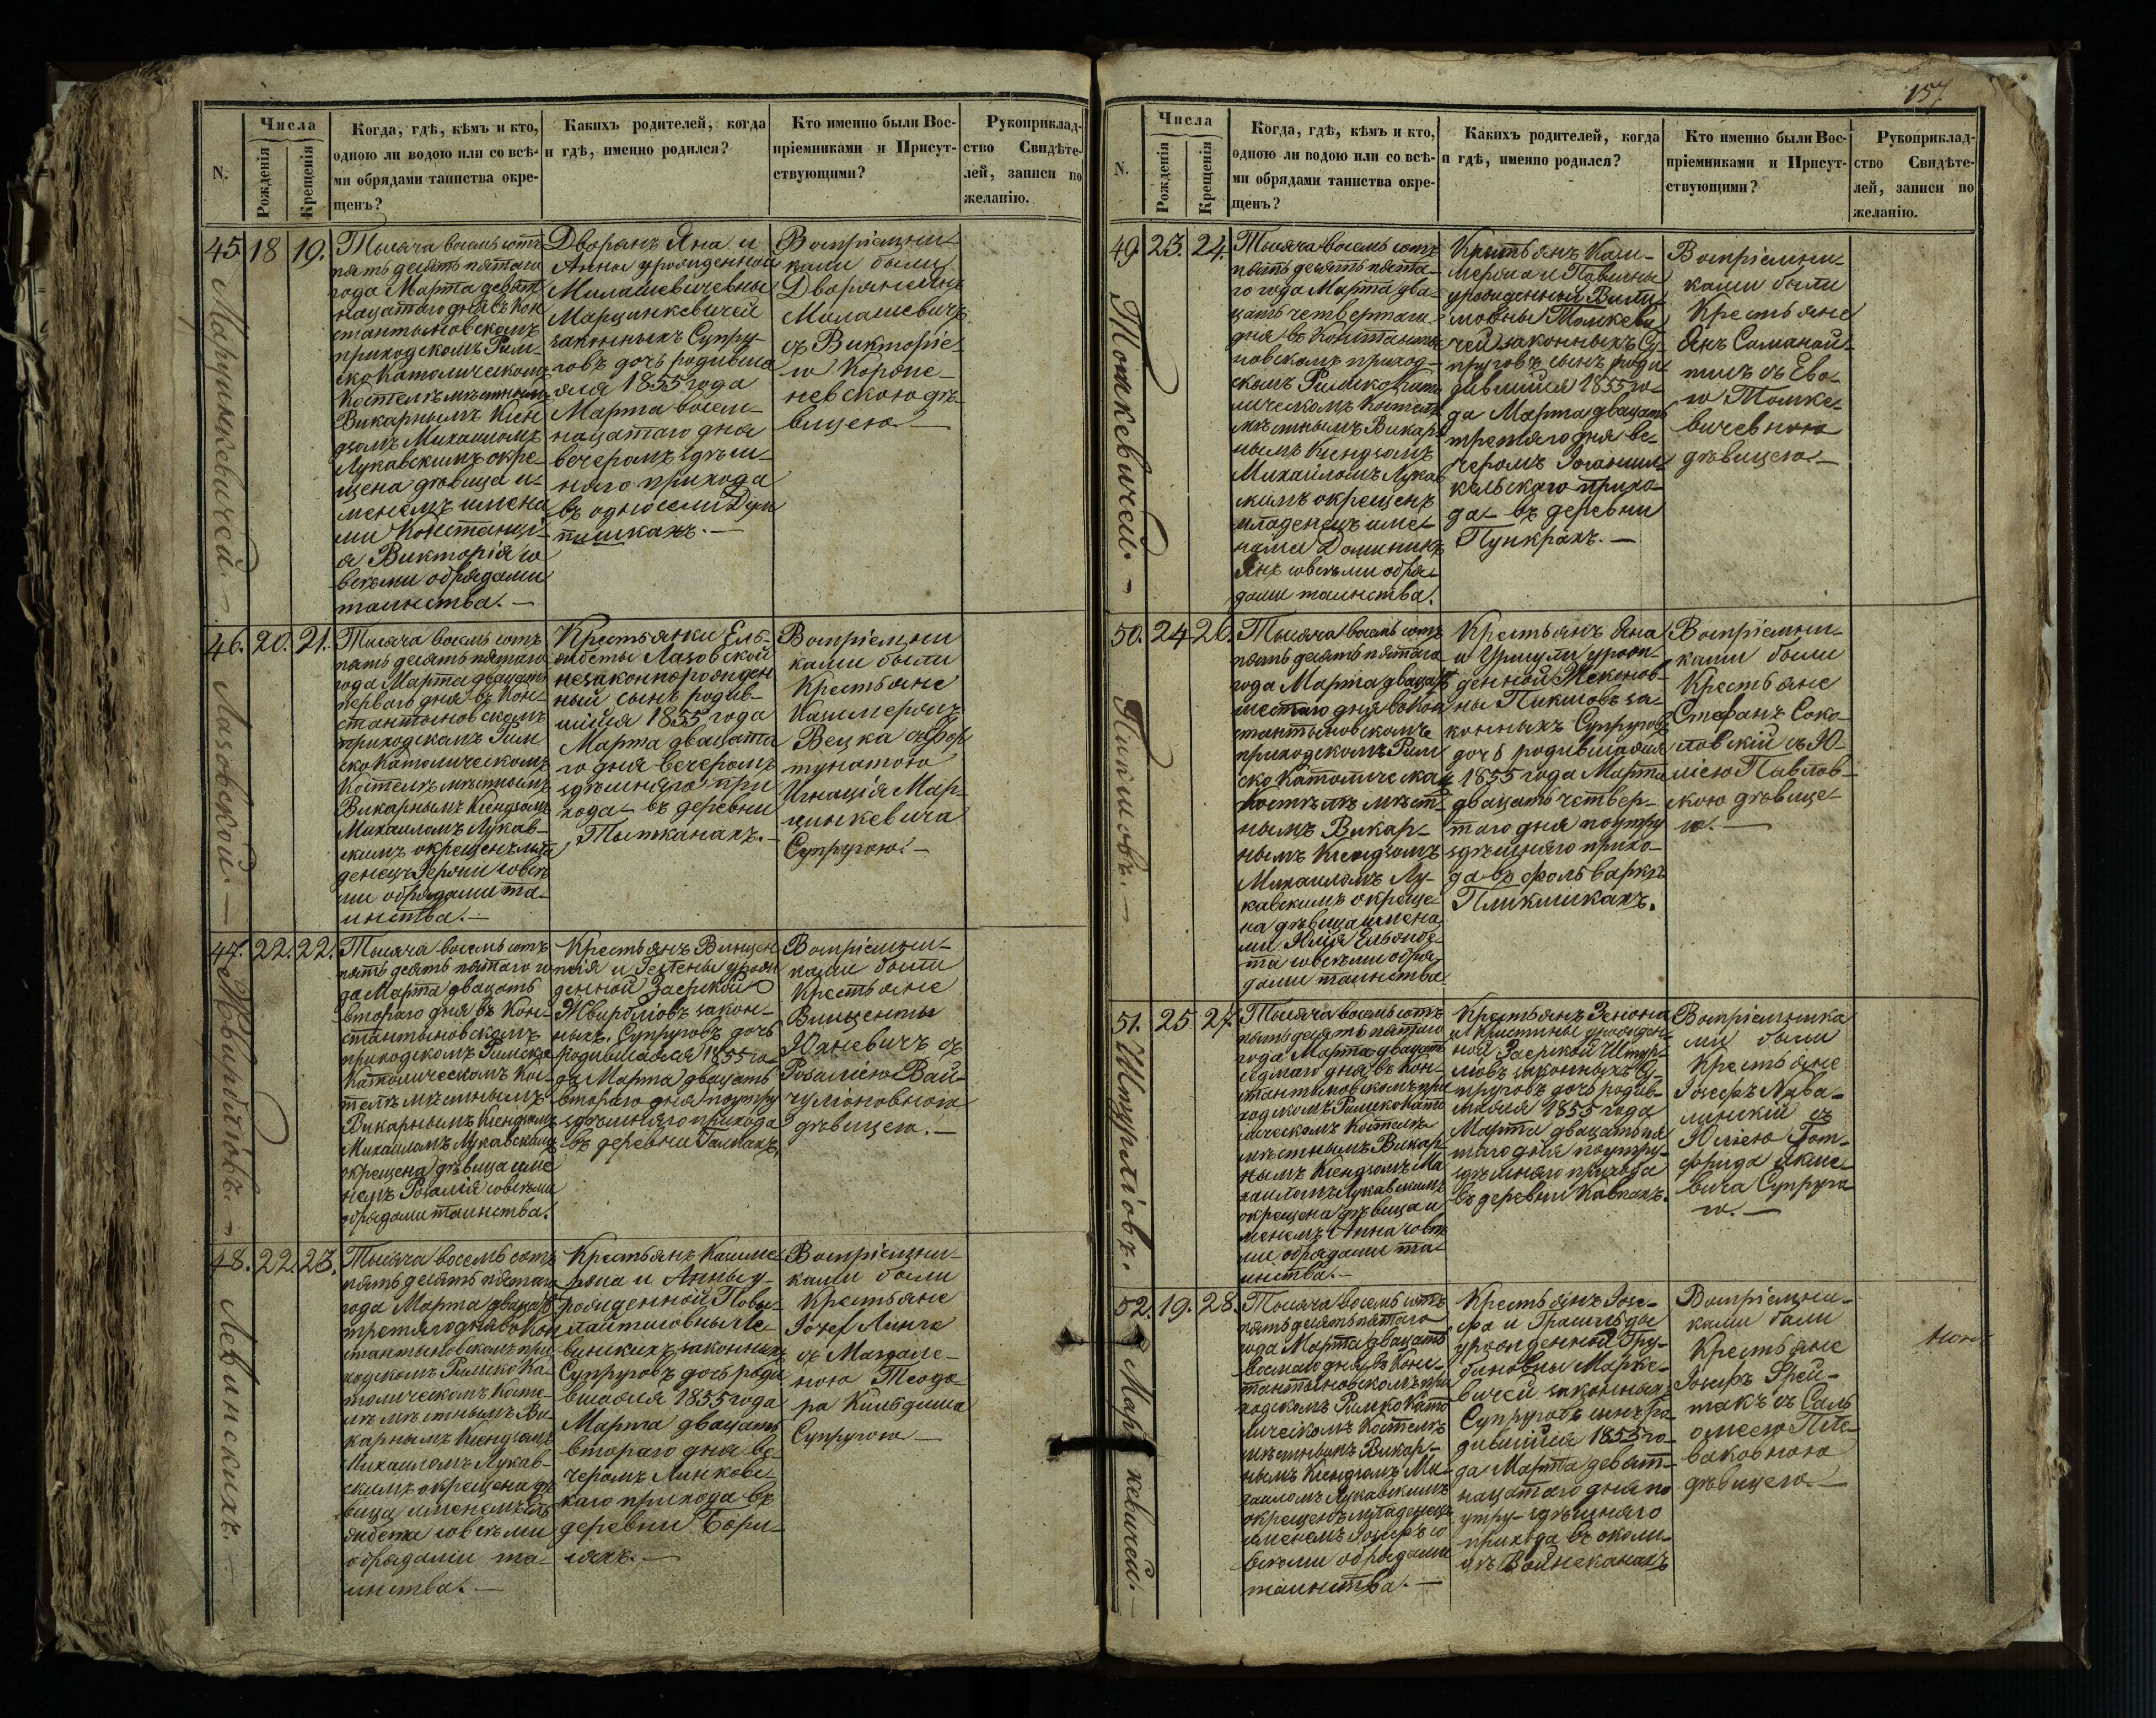 N.
Числа
Рожденія
Крещенія
Когда, гдѣ, кѣмъ и кто,
одною ли водою или со всѣ-
ми обрядами таинства окре-
щенъ?
Какихъ родителей, когда
и гдѣ, именно родился?
Кто именно были Вос-
пріемниками и Присут-
ствующими?
Рукоприклад-
ство Свидѣте-
лей, записи по
желанію.
45
Марцинкевичей. —
18
19.
Тысяча восемь сотъ
пять десять пятаго
года Марта девят
нацатого дня въ Кон
стантыновскомъ
приходскомъ Рим-
ско Католическомъ
Костелѣ мѣстнымъ
Викарнымъ Ксен
дзомъ Михаиломъ
Лукавскимъ окре-
щена дѣвица и-
менемъ имена
ми Констанці-
я Викторія со
всѣми обрядами
таинства. —
Дворянъ Яна и
Анны урожденной
Милашевичевны
Марцинкевичей
законныхъ Супру-
говъ дочь родивша
яся 1855 года
Марта восем-
нацатого дня
вечеромъ здѣш-
няго прихода
въ односели Дуки
пишкахъ. —
Воспріемни-
ками были
Дворянинъ
Милашевичъ
съ Викторіе-
ю Короне-
невскою дѣ-
вицею —
46.
Лазовской. —
20.
21.
Тысяча восемь сотъ
пять десять пятаго
года Марта двацать
перваго дня въ Кон-
стантыновскомъ
приходскомъ Рим
ско Католическомъ
Костелѣ мѣстнымъ
Викарнымъ Ксендзомъ
Михаиломъ Лукав-
скимъ окрещенъ мла
денецъ Героним со всѣ
ми обрядами та-
инства. —
Крестьянки Ель-
жбеты Лазовской
незаконнорожден
ный сынъ родив-
шійся 1855 года
Марта двацата
го дня вечеромъ
здѣшняго при
хода въ деревни
Тытканахъ. —
Воспріемни
ками были
Крестьяне
Казимеръ
Вецка съ Фор
тунатою
Игнація Мар
цинкевича
Супругою. —
47.
Жвирбліовъ. —
22.
22.
Тысяча восемь сотъ
пять десять пятаго го
да Марта двацать
втораго дня въ Кон-
стантыновскомъ
приходскомъ Римско
Католическомъ Кос-
телѣ мѣстнымъ
Викарнымъ Ксендзомъ
Михаиломъ Лукавскимъ
окрещена дѣвица име
немъ Розалія со всѣми
обрядами таинства.
Крестьянъ Винцен
тія и Гелены урож
денной Заерской
Жвирбліовъ закон-
ныхъ Супруговъ дочь
родившаяся 1855 го-
да Марта двацать
втораго дня поутру
здѣшняго прихода
въ деревни
Воспріемни-
ками были
Крестьяне
Винценты
Юхневичъ съ
Розаліею Вай-
чулёновною
дѣвицею. —
48.
Левинскихъ. —
22.
23.
Тысяча восемь сотъ
пять десять пятаго
года Марта двацать
третяго дня въ Кон
стантыновскомъ при
ходскомъ Римско Ка-
толическомъ Косте-
лѣ мѣстнымъ Ви-
карнымъ Ксендзомъ
Михаиломъ Лукав-
скимъ окрещена дѣ
вица именемъ Ель
жбета со всѣми
обрядами та-
инства. —
Крестьянъ Казиме
ряна и Анны у-
рожденной Повы-
лайтисовны Ле-
винскихъ законныхъ
Супруговъ дочь роди
вшаяся 1855 года
Марта двацать
втораго дня ве-
черомъ Линков-
скаго прихода въ
деревни Бори-
Воспріемни-
ками были
Крестьяне
Іозеф Линга
съ Магдале-
ною Теодо-
ра Кильдиша
Супругою —
157.
N.
Числа
Рожденія
Крещенія
Когда, гдѣ, кѣмъ и кто,
одною ли водою или со всѣ-
ми обрядами таинства окре-
щенъ?
Какихъ родителей, когда
и гдѣ, именно родился?
Кто именно были Вос-
пріемниками и Присут-
ствующими?
Рукоприклад-
ство Свидѣте-
лей, записи по
желанію.
49.
Томкевичей. —
23.
24.
Тысяча восемь сотъ
пять десять пята-
го года Марта два-
цать четвертаго
дня въ Константы
новскомъ приход-
скомъ Римско Като
лическомъ Костелѣ
мѣстнымъ Викар
нымъ Ксендзомъ
Михаиломъ Лукав
скимъ окрещенъ
младенецъ име-
нами Доминикъ
Янъ со всѣми обря-
дами таинства.
Крестьянъ Кази-
меряна и Павлины
урожденной Вили-
мовны Томкеви
чей законныхъ Су-
пруговъ сынъ роди
дившійся 1855 го-
да Марта двацать
третяго дня ве-
черомъ Іоанниш-
кельскаго прихо-
да въ деревни
Пункрахъ. —
Воспріемни-
ками были
Крестьяне
Янъ Саманай-
тисъ съ Ево-
ю Томке-
вичевною
дѣвицею. —
50.
Пикшовъ. —
24
26.
Тысяча восемь сотъ
пять десять пятаго
года Марта двацать
шестаго дня въ Кон
стантыновскомъ
приходскомъ Рим
ско Католическомъ
Костелѣ мѣст-
нымъ Викар-
нымъ Ксендзомъ
Михаиломъ Лу-
кавскимъ окреще-
на дѣвица имена
ми Юлія Ельжбе-
та со всѣми обря-
дами таинства
Крестьянъ Яна
и Уршули урож-
денной
ны Пикшовъ за-
конныхъ Супруговъ
дочь родившаяся
1855 года Марта
двацать четвер-
таго дня поутру
здѣшняго прихо-
да въ фольваркѣ
Пликишкахъ.
Воспріемни-
ками были
Крестьяне
Стефанъ Соко-
ловскій съ Ю-
ліею Павлов-
скою дѣвице-
ю. —
51.
Штурліовъ.
25
27.
Тысяча восемь сотъ
пять десять пятаго
года Марта двацать
седмаго дня въ Кон-
стантыновскомъ при
ходскомъ Римско Като
лическомъ Костелѣ
мѣстнымъ Викар-
нымъ Ксендзомъ Ми
хаиломъ Лукавскимъ
окрещена дѣвица и
менемъ Анна со всѣ
ми обрядами та-
инства. —
Крестьянъ Зенона
и Кристины урожден-
ной Заерской Штур-
ліовъ законныхъ Су-
пруговъ дочь родив-
шаяся 1855 года
Марта двацать пя
таго дня поутру
здѣшняго прихода
въ деревни Кавнахъ.
Воспріемника
ми были
Крестьяне
Іозефъ
съ
Юліею Гот-
фрида Якие-
вича Супруго
ю. —
52.
кевичей. —
19.
28.
Тысяча восемь сотъ
пять десять пятаго
года Марта двацать
восмаго дня въ Конс-
тантыновскомъ при
ходскомъ Римско Като
лическомъ Костелѣ
мѣстнымъ Викар-
нымъ Ксендзомъ Ми-
хаиломъ Лукавскимъ
окрещенъ младенецъ
именемъ Іозефъ со
всѣми обрядами
таинства. —
Крестьянъ Іозе-
фа и Грасильды
урожденной Гру-
биновны Марке-
вичей законныхъ
Супруговъ сынъ ро
дившійся 1855 го-
да Марта девят-
нацатого дня по
утру здѣшняго
прихода въ околи-
цѣ Войнеканахъ
Воспріемни-
ками были
Крестьяне
Іозефъ Фрей-
такъ съ Саль
омеею Пле-
ваковною
дѣвицею. —